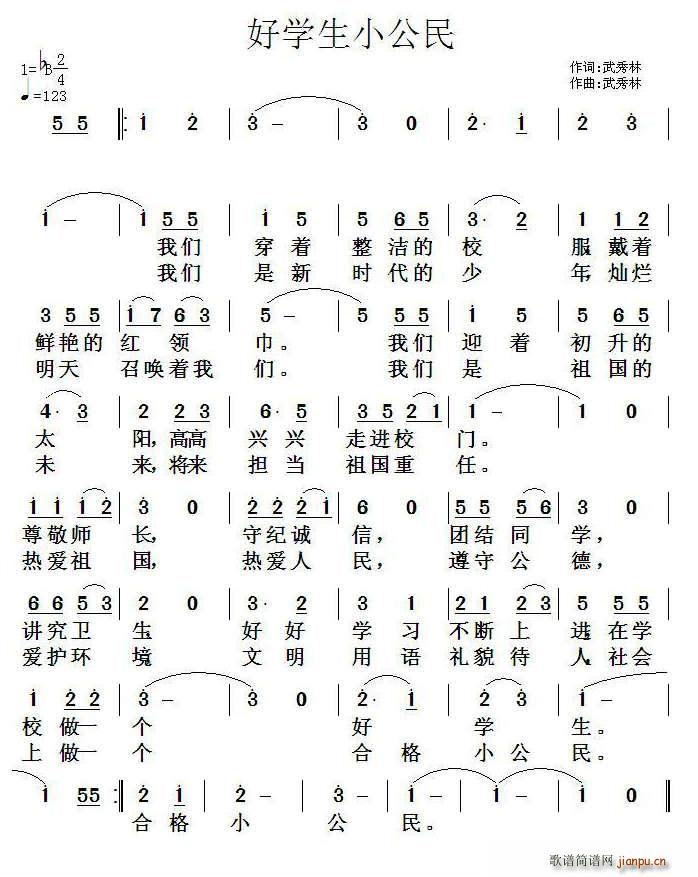 好学生小公民
1=♭B 2/4
♩=123
作词:武秀林
作曲:武秀林
5 5 ‖: i 2̇ | 3̇ – | 3̇ 0 | 2̇· i | 2̇ 3̇
i – | i 5 5 | i 5 | 5 6 5 | 3̇· 2̇ | 1 1 2
我们 穿着 整洁的 校 服 戴着
我们 是新 时代的 少 年,灿烂
3 5 5 | i 7 6 3 | 5 – | 5 5 5 | i 5 | 5 6 5
鲜艳的 红领 巾。 我们 迎着 初升的
明天 召唤着我 们。 我们 是 祖国的
4· 3 | 2 2 2 3 | 6· 5 | 3 5 2 1 | 1 – | 1 0
太 阳,高高 兴兴 走进校 门。
未 来,将来 担当 祖国重 任。
i i i 2̇ | 3̇ 0 | 2̇ 2̇ 2̇ i | 6 0 | 5 5 5 6 | 3 0
尊敬师 长, 守纪诚 信, 团结同 学,
热爱祖 国, 热爱人 民, 遵守公 德,
6 6 5 3 | 2 0 | 3· 2 | 3 1 | 2 1 2 3 | 5 5 5
讲究卫 生, 好好 学习 不断上 进,在学
爱护环 境, 文明 用语 礼貌待 人,社会
i 2̇ 2̇ | 3̇ – | 3̇ 0 | 2̇· i | 2̇ 3̇ | i –
校做一 个 好 学 生。
上做一 个 合格 小公 民。
i 55 :‖ 2̇ i | 2̇ – | 3̇ – | i – | i – | i 0 ‖
合格 小 公 民。
歌谱简谱网
jianpu.cn